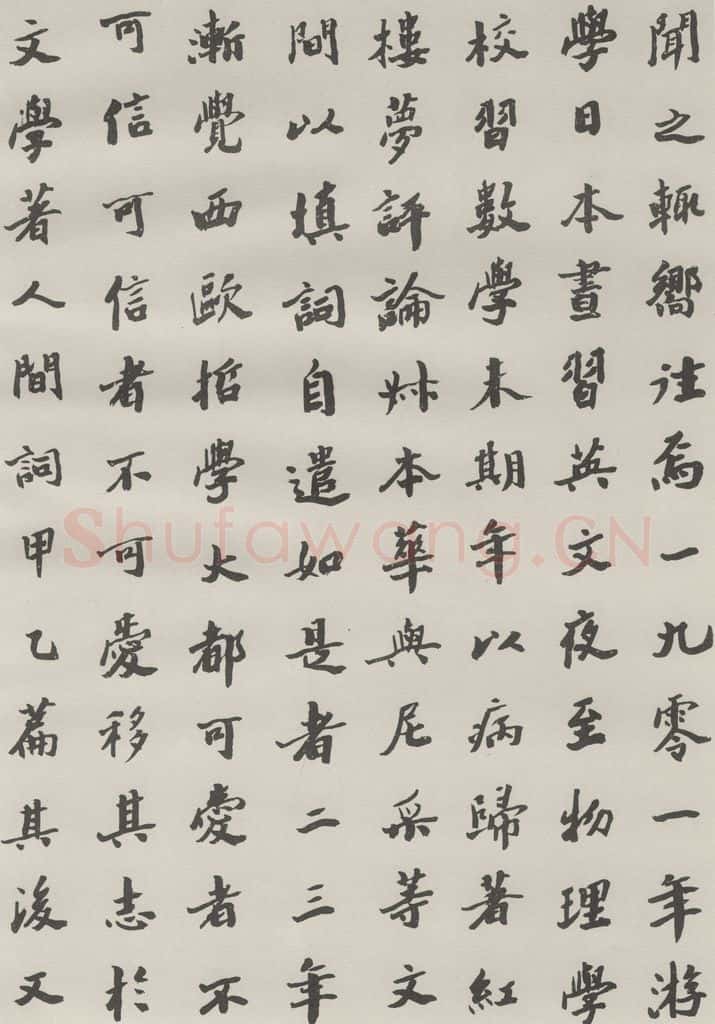 聞之輒嚮往焉一九零一年游
學日本晝習英文夜至物理學
校習數學未期年以病歸著紅
樓夢評論艸本華與尼采等文
間以填詞自遣如是者二三年
漸覺西歐哲學大都可愛者不
可信可信者不可愛移其志於
文學著人間詞甲乙篇其後又
Shufawang.CN